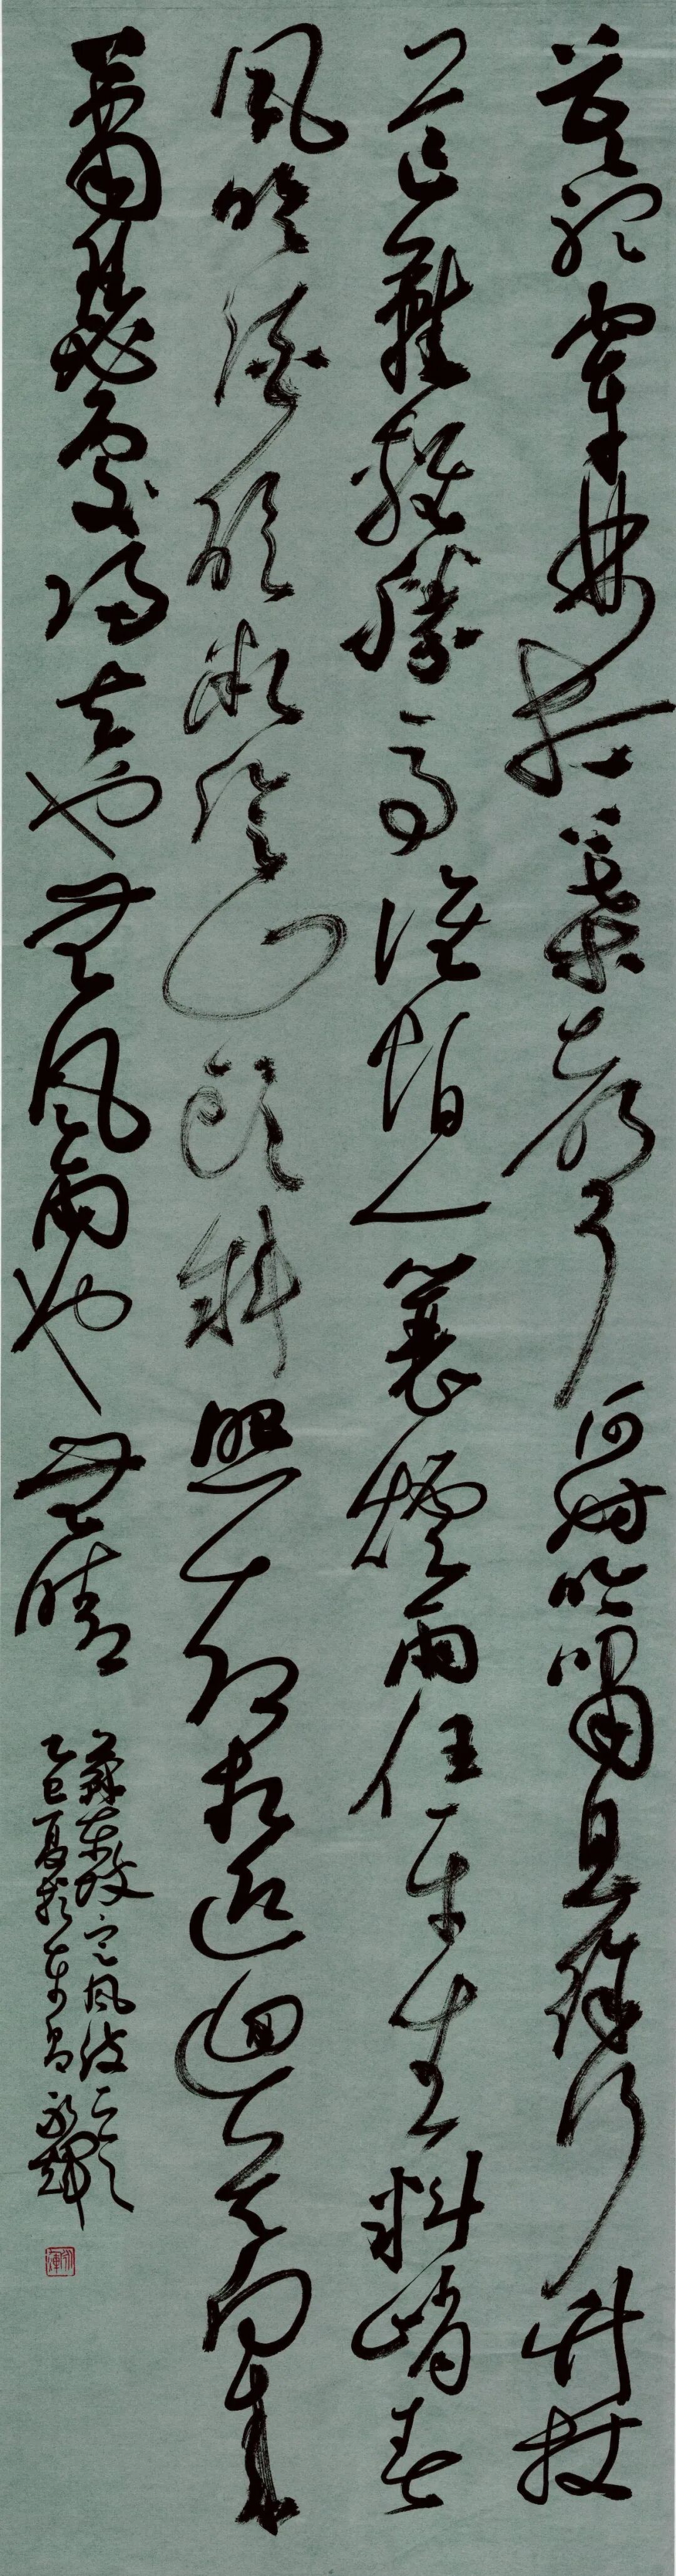 莫聽穿林打葉聲何妨吟嘯且徐行竹杖
芒鞋輕勝馬誰怕一蓑煙雨任平生料峭春
風吹酒醒微冷山頭斜照却相迎迴首向來
蕭瑟處歸去也無風雨也無晴
蘇東坡定風波
乙巳夏於